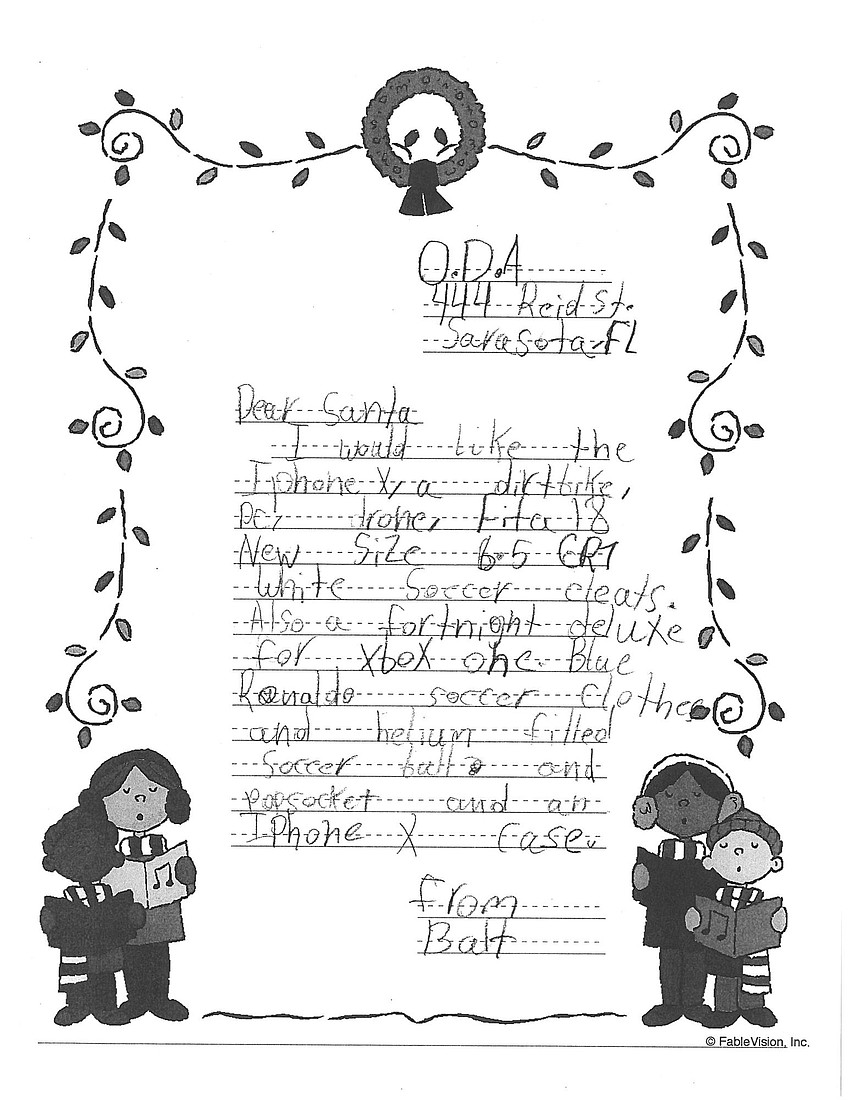 O.D.A
444 Reid St.
Sarasota, FL
Dear Santa
I would like the
Iphone X, a dirtbike,
pet drone, Fifa 18
New Size 6.5 CR7
White Soccer cleats.
Also a fortnight deluxe
for xbox one. Blue
Ronaldo soccer clothes
and helium filled
Soccer ball and
popsocket and an
IPhone X case.
From
Balt
© FableVision, Inc.